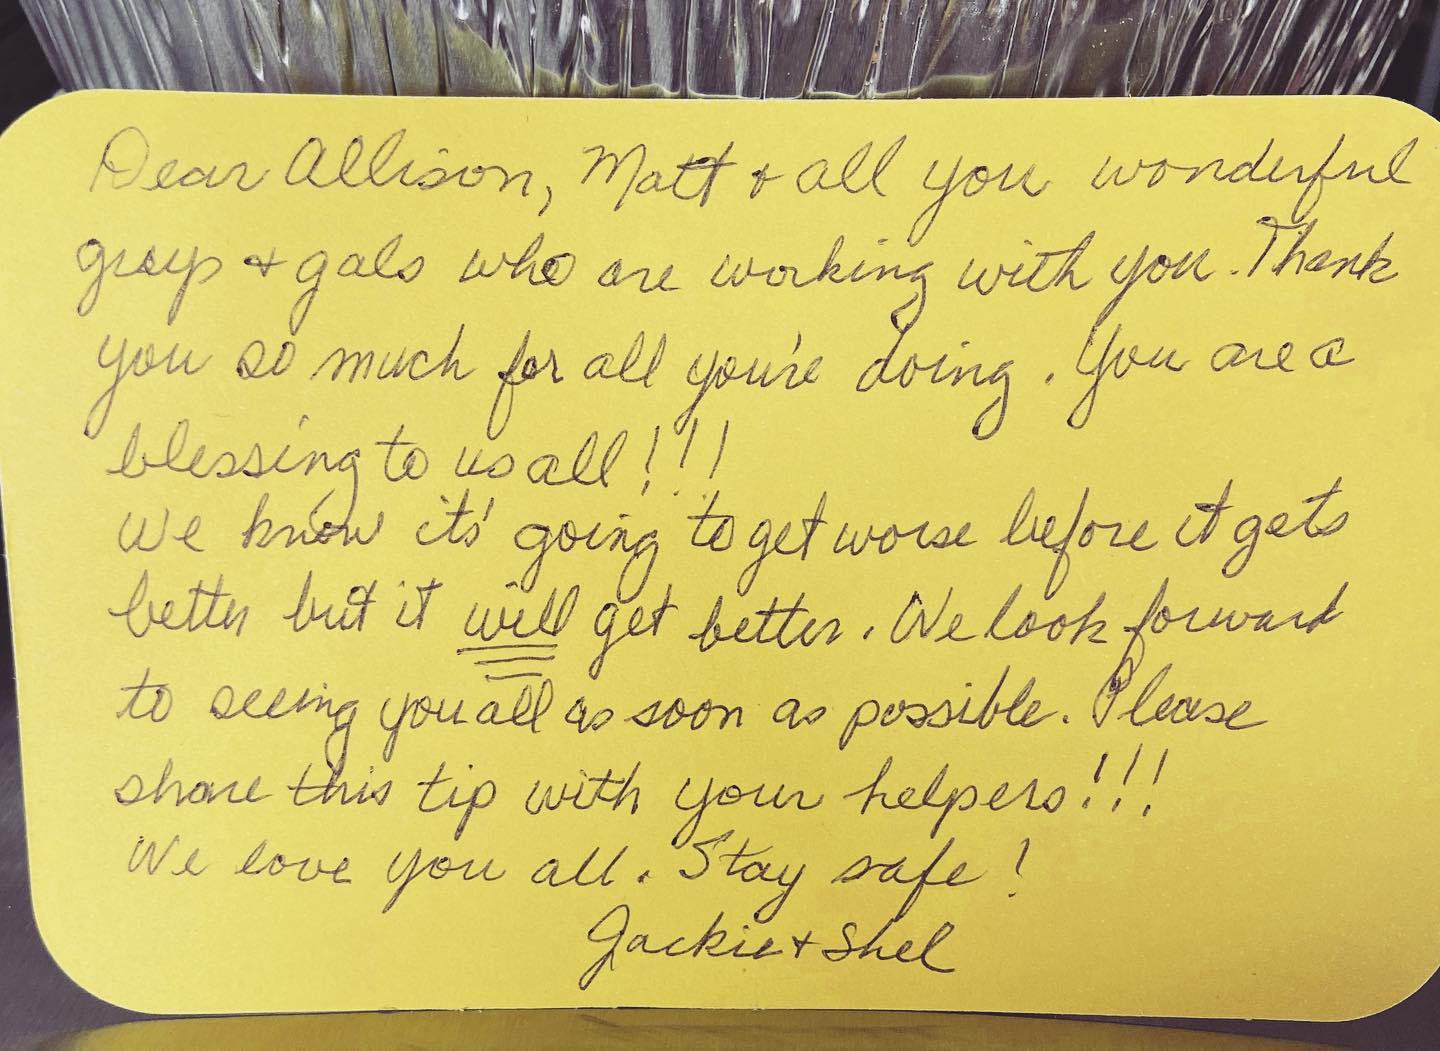 Dear Allison, Matt + all you wonderful
guys + gals who are working with you. Thank
you so much for all you're doing. You are a
blessing to us all!!!
We know its' going to get worse before it gets
better but it will get better. We look forward
to seeing you all as soon as possible. Please
share this tip with your helpers!!!
We love you all. Stay safe!
Jackie + Shel